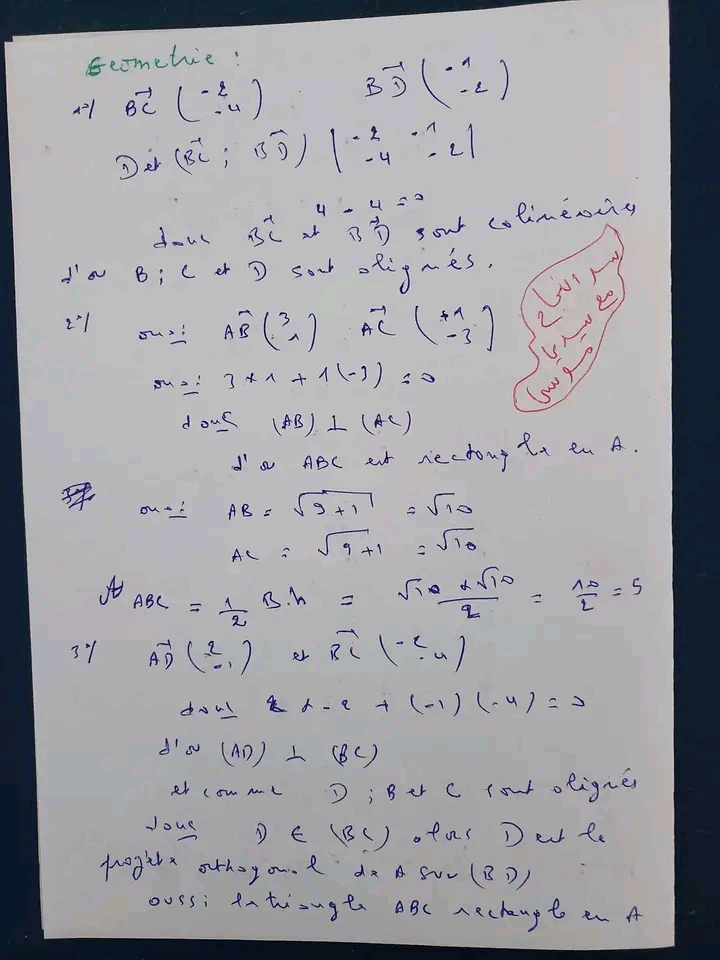 Geometrie :
1°/ BC→ (-2 -4) BD→ (-1 -2)
Det (BC→ ; BD→) |-2 -1 -4 -2|
4 - 4 = 0
donc BC→ et BD→ sont colinéaires
d'où B ; C et D sont alignés.
2°/ on a : AB→ (3 1) AC→ (+1 -3)
on a : 3 × 1 + 1(-3) = 0
donc (AB) ⊥ (AC)
d'où ABC est rectangle en A.
on a : AB = √9+1 = √10
AC = √9+1 = √10
A ABC = 1/2 B.h = √10 × √10 / 2 = 10/2 = 5
3°/ AD→ (2 -1) et BC→ (-2 -4)
donc 2 × -2 + (-1)(-4) = 0
d'où (AD) ⊥ (BC)
et comme D ; B et C sont alignés
donc D ∈ (BC) alors D est le
projeté orthogonal de A sur (BD)
aussi le triangle ABC rectangle en A
سر النجاح
مع سيدي
موسى